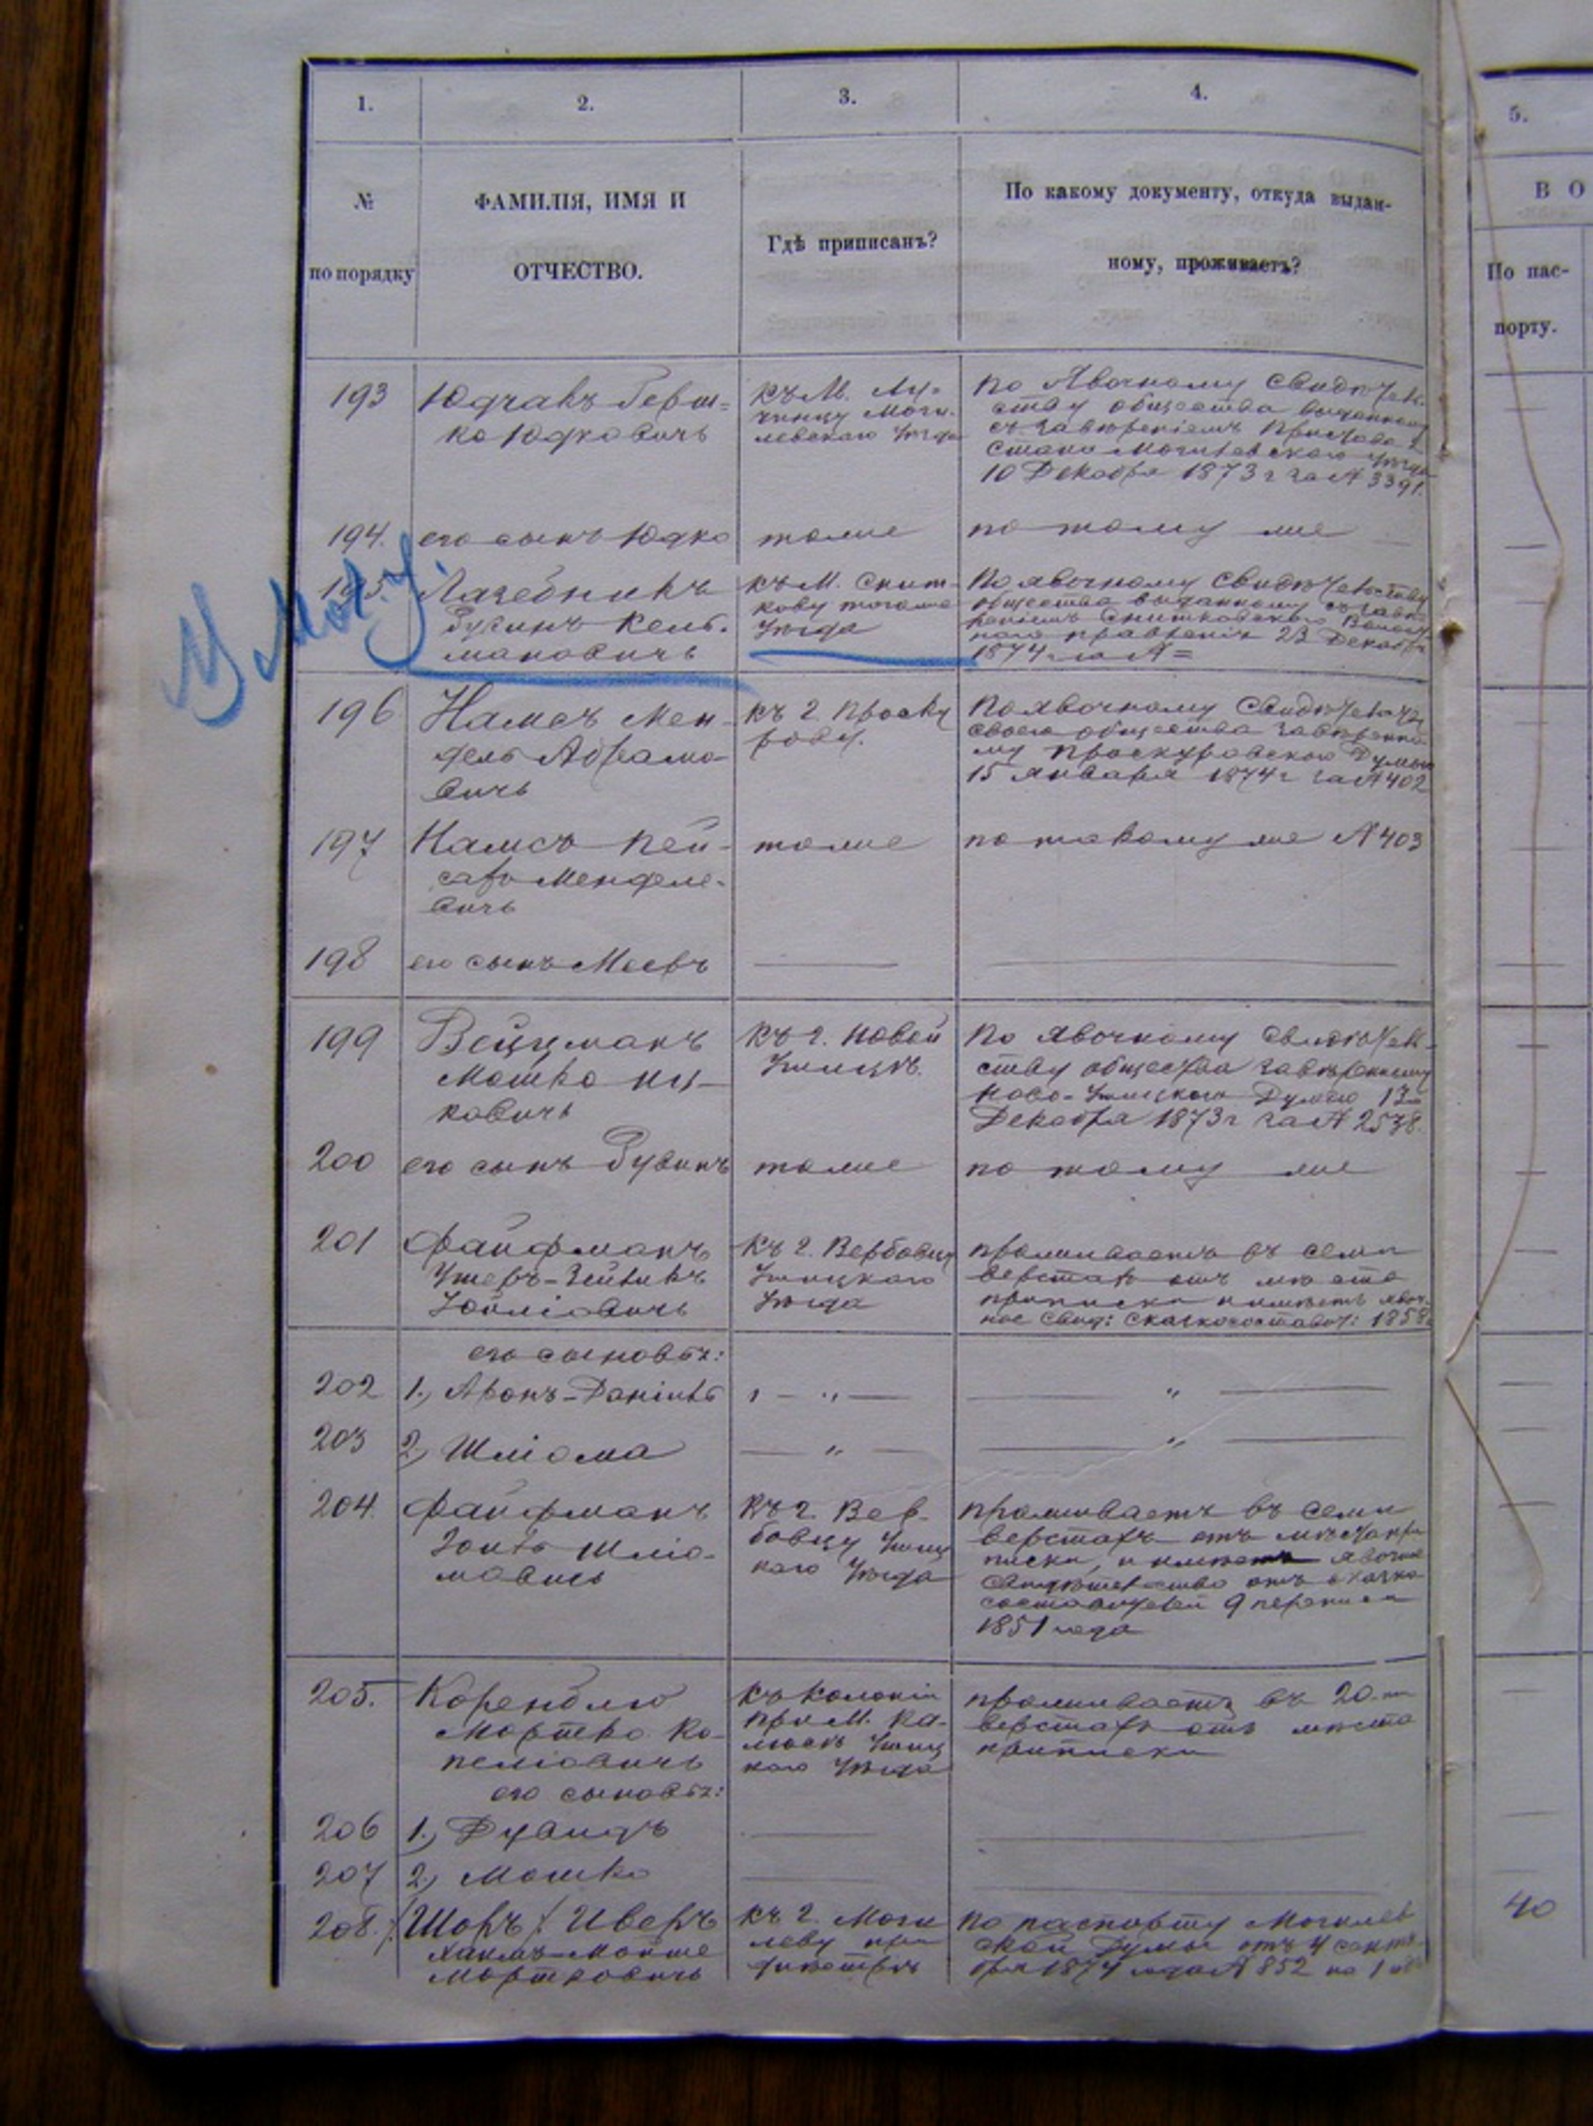 1.
2.
3.
4.
5.
№
по порядку
ФАМИЛІЯ, ИМЯ И
ОТЧЕСТВО.
Гдѣ приписанъ?
По какому документу, откуда выдан-
ному, проживаетъ?
В О
По пас-
порту.
193
Юдчакъ Герш-
ко Юдковичъ
къ М. Лу-
чинцу Моги-
левскаго Уѣзда
По Явочному Свидѣтель-
ству общества выданному
съ завѣреніемъ Пристава 2
стана Могилевскаго Уѣзда
10 Декабря 1873 г за № 3391.
194.
его сынъ Юдко
тоже
по тому же
195.
Лазебникъ
Рувинъ Кель-
мановичъ
къ М. Снит-
кову тогоже
Уѣзда
По явочному Свидѣтельству
общества выданному съ завѣ-
реніемъ Снитковскаго Волост-
наго правленія 23 Декабря
1874 г за № =
196
Намсъ Мен-
дель Абрамо-
вичъ
къ г. Проску
рову.
По явочному Свидѣтельству
своего общества завѣренно-
му Проскуровскою Думою
15 января 1874 г за № 402
197
Намсъ Пей-
сахъ Менделе-
вичъ
тоже
по такому же № 403
198
его сынъ Мееръ
199
Вейцманъ
Мошко Иц-
ковичъ
къ г. Новой
Ушицѣ.
По явочному свидѣтель-
ству общества завѣренному
Ново-Ушицкою Думою 13
Декабря 1873 г за № 2538.
200
его сынъ Рувинъ
тоже
по тому же
201
Файфманъ
Ушеръ-Зейликъ
Іойліовичъ
Къ г. Вербовцу
Ушицкаго
Уѣзда
проживаетъ въ семи
верстахъ отъ мѣста
приписки и имѣетъ явоч-
ное Свид: Сказкосоставот: 1858
его сыновья:
202
1., Аронъ-Даніилъ
„
„
203
2., Шліома
„
„
204.
Файфманъ
Іоиль Шліо-
мовичъ
Къ г. Вер-
бовцу Ушиц
каго Уѣзда
проживаетъ въ семи
верстахъ отъ мѣста при
писки, и имѣетъ явочное
свидѣтельство отъ сказко
составителей 9 переписи
1851 года
205.
Коренблю
Мортко Ко-
пеліовичъ
его сыновья:
къ колоніи
при М. Ка-
люсѣ Ушиц
каго Уѣзда
проживаетъ въ 20-ти
верстахъ отъ мѣста
приписки
206
1., Дувидъ
207
2., Мошко
208.
/Шоръ/ Иверъ
Хаимъ-Мойше
Мортковичъ
къ г. Моги
леву при
Днѣстрѣ
По паспорту Могилев
ской Думы отъ 4 сентя-
бря 1874 года № 852 на 1
40